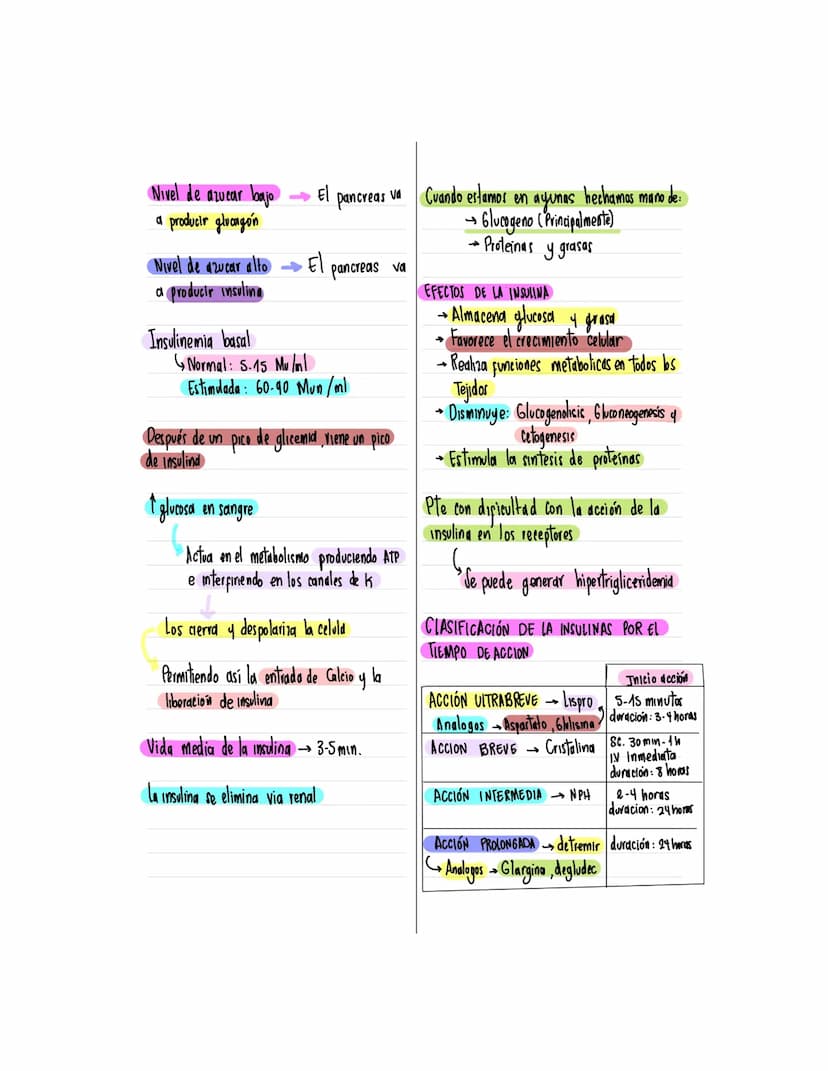 Nivel de azucar bajo → El pancreas va
a producir glucagón
Nivel de azucar alto → El pancreas va
a producir insulina
Insulinemia basal
↳ Normal: 5-15 Mu/ml
Estimulada: 60-90 Mun/ml
Después de un pico de glicemia, viene un pico
de insulina
↑ glucosa en sangre
Actua en el metabolismo produciendo ATP
e interfiriendo en los canales de K
Los cierra y despolariza la celula
Permitiendo así la entrada de Calcio y la
liberación de insulina
Vida media de la insulina → 3-5 min.
La insulina se elimina via renal
Cuando estamos en ayunas hechamos mano de:
→ Glucogeno (Principalmente)
→ Proteinas y grasas
EFECTOS DE LA INSULINA
→ Almacena glucosa y grasa
→ Favorece el crecimiento celular
→ Realiza funciones metabolicas en todos los
Tejidos
→ Disminuye: Glucogenolisis, Gluconeogenesis y
Cetogenesis
→ Estimula la sintesis de proteínas
Pte con dificultad con la acción de la
insulina en los receptores
Se puede generar hipertrigliceridemia
CLASIFICACIÓN DE LA INSULINAS POR EL
TIEMPO DE ACCION
Inicio acción
ACCIÓN ULTRABREVE → Lispro
Analogos → Aspartato, Glulisina
5-15 minutos
duración: 3-4 horas
ACCION BREVE → Cristalina
SC. 30 min-1h
IV Inmediata
duración: 8 horas
ACCIÓN INTERMEDIA → NPH
2-4 horas
duracion: 24 horas
ACCIÓN PROLONGADA → detremir
↳ Analogos → Glargina, degludec
duración: 24 horas